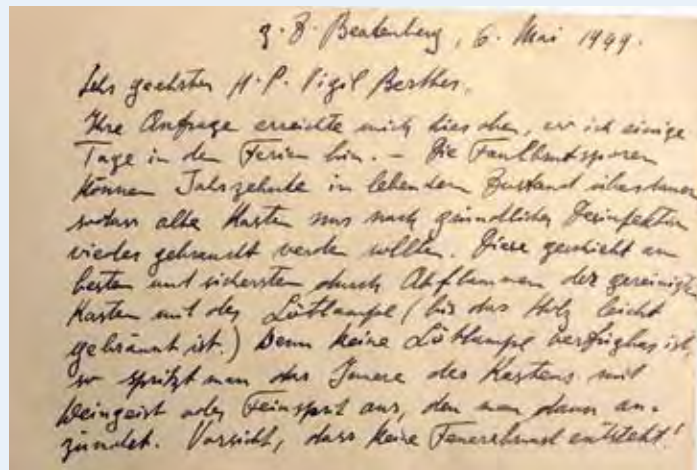 z. Z. Beatenberg, 6. Mai 1949.
Sehr geehrter H. P. Vigil Berther,
Ihre Anfrage erreichte mich hier oben, wo ich einige
Tage in den Ferien bin. – Die Faulbrutsporen
können Jahrzehnte in lebendem Zustand überdauern
sodass alte Kasten nur nach gründlicher Desinfektion
wieder gebraucht werden sollten. Diese geschieht am
besten und sichersten durch Abflammen der gereinigten
Kasten mit der Lötlampe (bis das Holz leicht
gebräunt ist.) Wenn keine Lötlampe verfügbar ist,
so spritzt man das Innere des Kastens mit
Weingeist oder Feinsprit aus, den man dann an-
zündet. Vorsicht, dass keine Feuersbrunst entsteht!